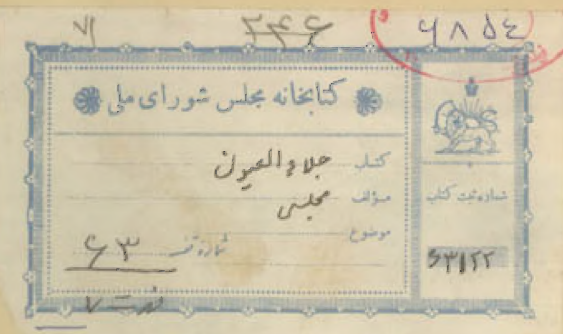 ۷۱ ۲۴۶ ۶۸۵۴
کتابخانه مجلس شورای ملی
کتاب جلاء العیون
مؤلف مجلسی
موضوع
شماره قفسه ۶۳
شماره ثبت کتاب
۶۳۱۲۲